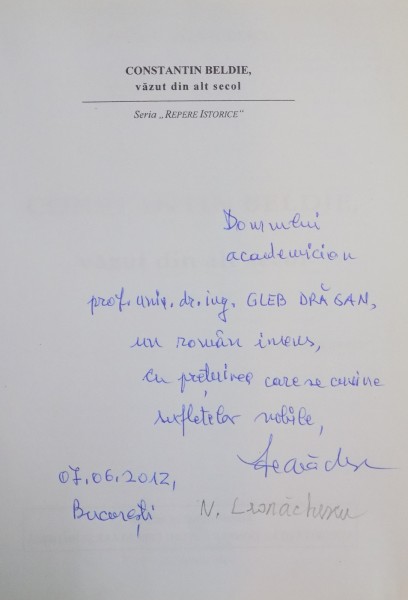 CONSTANTIN BELDIE,
văzut din alt secol
Seria „REPERE ISTORICE”
Domnului
academician
prof. univ. dr. ing. GLEB DRĂGAN,
un român imens,
cu prețuirea care se cuvine
sufletelor nobile,
07.06.2012,
București
N. Leonăchescu